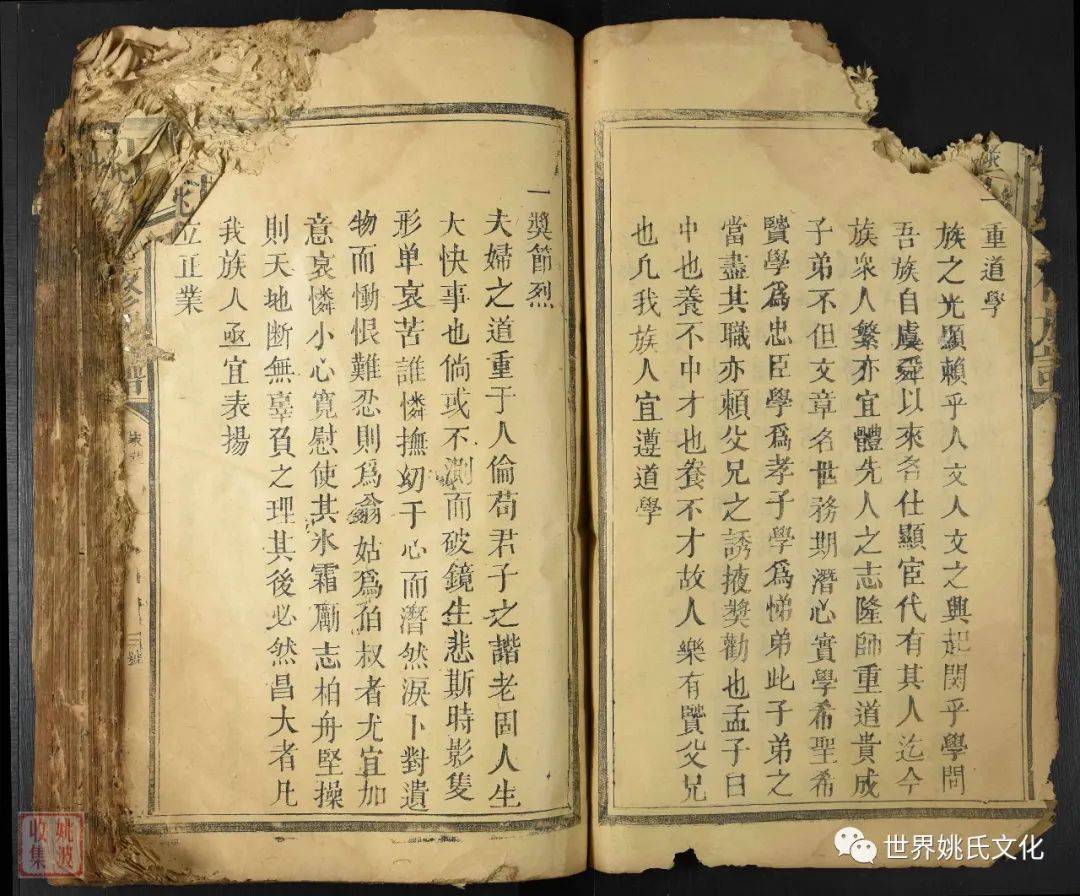 一重道學
族之光顯賴乎人文人文之興起関乎學問
吾族自虞舜以來名仕顯宦代有其人迄今
族衆人繁亦宜體先人之志隆師重道貴成
子弟不但文章名世務期潛心實學希聖希
賢學爲忠臣學爲孝子學爲悌弟此子弟之
當盡其職亦賴父兄之誘掖奬勸也孟子曰
中也養不中才也養不才故人樂有賢父兄
也凢我族人宜遵道學
一奬節烈
夫婦之道重于人倫苟君子之諧老固人生
大快事也倘或不測而破鏡生悲斯時影隻
形单哀苦誰憐撫㓜于心而潸然淚卜對遺
物而慟恨難忍則爲翁姑爲伯叔者尤宜加
意哀憐小心寬慰使其氷霜勵志柏舟堅操
則天地断無辜負之理其後必然昌大者凡
我族人亟宜表揚
立正業
姚波
收集
世界姚氏文化